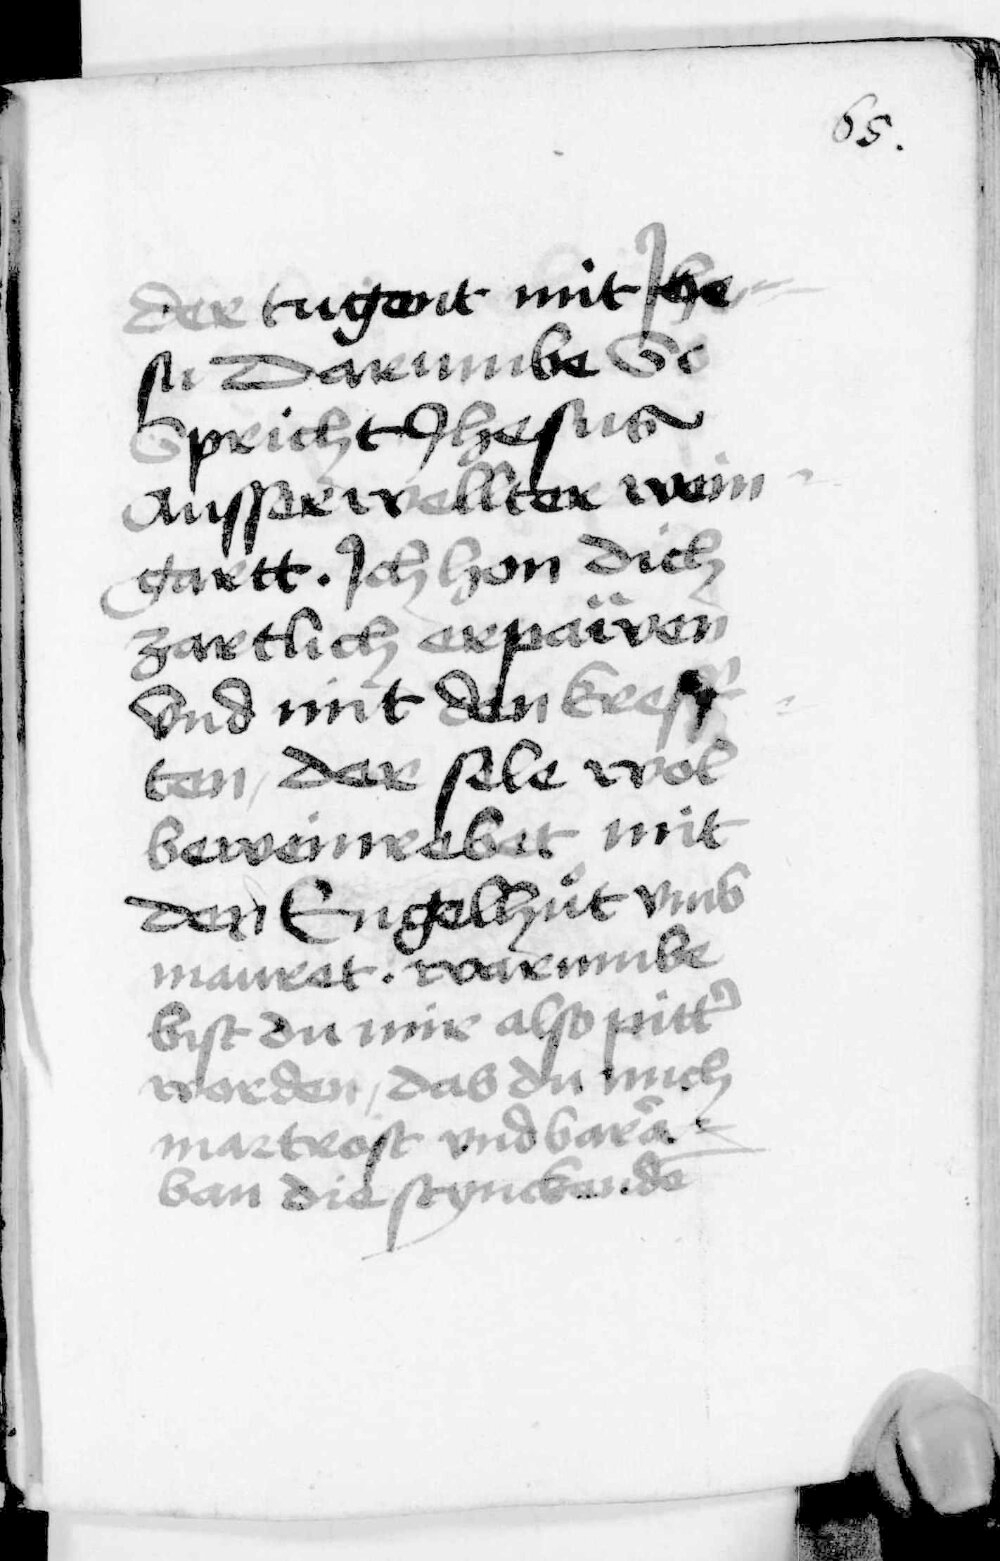 65.
der tugent mit Jhe-
su Darumbe So
Spricht Jhesus
Ausserwellter wein-
gartt. Ich hon dich
zartlich erpäwen
vnd mit den kreff-
ten, der sele wol
beweinrebet mit
den Engelhůt vmb
mauret. warumbe
bist du mir also pitt'
worden, das du mich
martrost vnd bara-
ban die stynckende